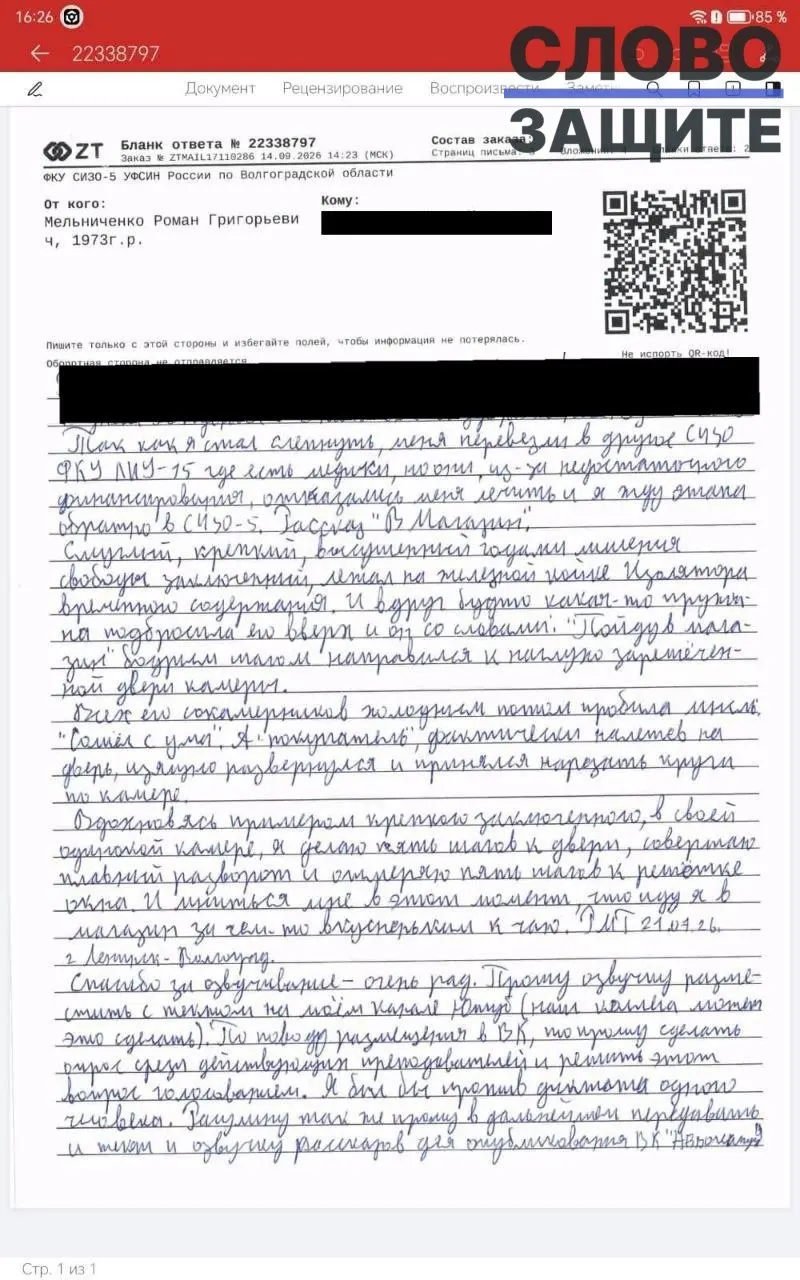 16:26 85 %
22338797
СЛОВО
ЗАЩИТЕ
Документ Рецензирование Воспроизвести Заметк
ZT Бланк ответа № 22338797
Состав заказа:
Заказ № ZTMAIL17110286 14.09.2026 14:23 (МСК)
Страниц письма:
ФКУ СИЗО-5 УФСИН России по Волгоградской области
От кого:
Мельниченко Роман Григорьеви
ч, 1973г.р.
Кому:
Пишите только с этой стороны и избегайте полей, чтобы информация не потерялась.
Оборотная сторона не отправляется
Не испорть QR-код!
Так как я стал слепнуть, меня перевезли в другое СИЗО
ФКУ ЛИУ-15 где есть медики, но они, из-за недостаточного
финансирования, отказались меня лечить и я жду этапа
обратно в СИЗО-5. Рассказ "В Магазин".
Смуглый, крепкий, высушенный годами лишения
свободы заключенный, лежал на железной койке Изолятора
временного содержания. И вдруг будто какая-то пружи-
на подбросила его вверх и он со словами: "Пойду в мага-
зин" бодрым шагом направился к наглухо заречён-
ной двери камеры.
Всех его сокамерников холодным потом пробила мысль
"Сошёл с ума". А "покупатель", фактически налетев на
дверь, изящно развернулся и принялся нарезать круги
по камере.
Вдохновясь примером крепкого заключенного, в своей
одинокой камере, я делаю пять шагов к двери, совершаю
плавный разворот и отмеряю пять шагов к решётке
окна. И мниться мне в этот момент, что иду я в
магазин за чем-то вкусненьким к чаю. РМГ 21.07.26.
г Ленинск-Волгоград.
Спасибо за озвучивание - очень рад. Прошу озвучку разме-
стить с текстом на моём канале Ютуб (наш коллега может
это сделать). По поводу размещения в ВК, то прошу сделать
опрос среди действующих преподавателей и решить этот
вопрос голосованием. Я был бы против диктата одного
человека. Разумину так же прошу в дальнейшем передавать
и текст и озвучку рассказов для опубликования ВК
Стр. 1 из 1